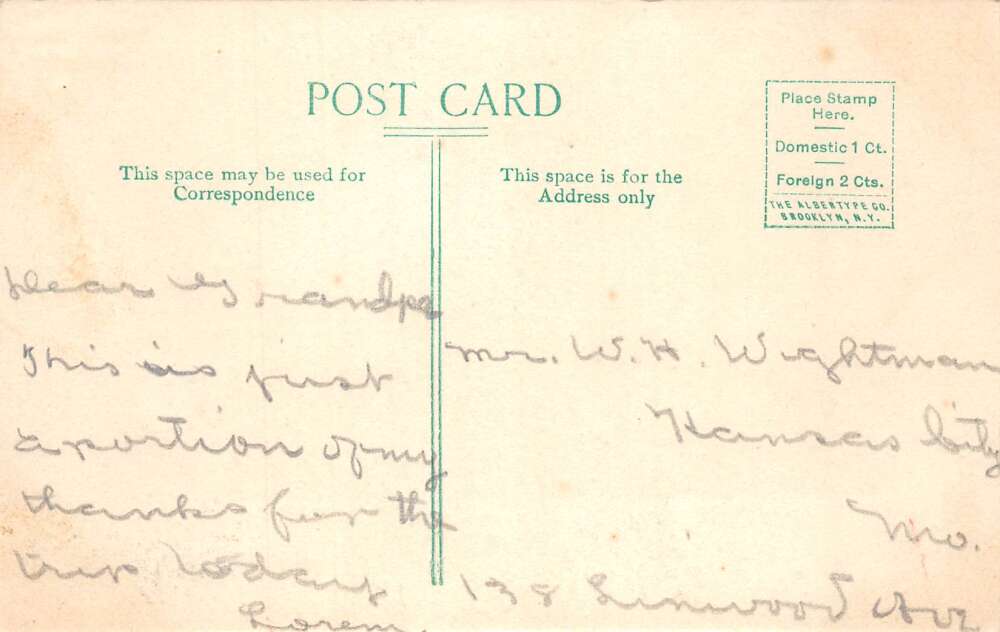 POST CARD
This space may be used for
Correspondence
This space is for the
Address only
Place Stamp
Here.
Domestic 1 Ct.
Foreign 2 Cts.
THE ALBERTYPE CO.
BROOKLYN, N.Y.
Dear Grandpa
This is just
a portion of my
thanks for the
trip today
Loren
Mr. W. H. Wightman
Kansas City
Mo.
138 Linwood Ave